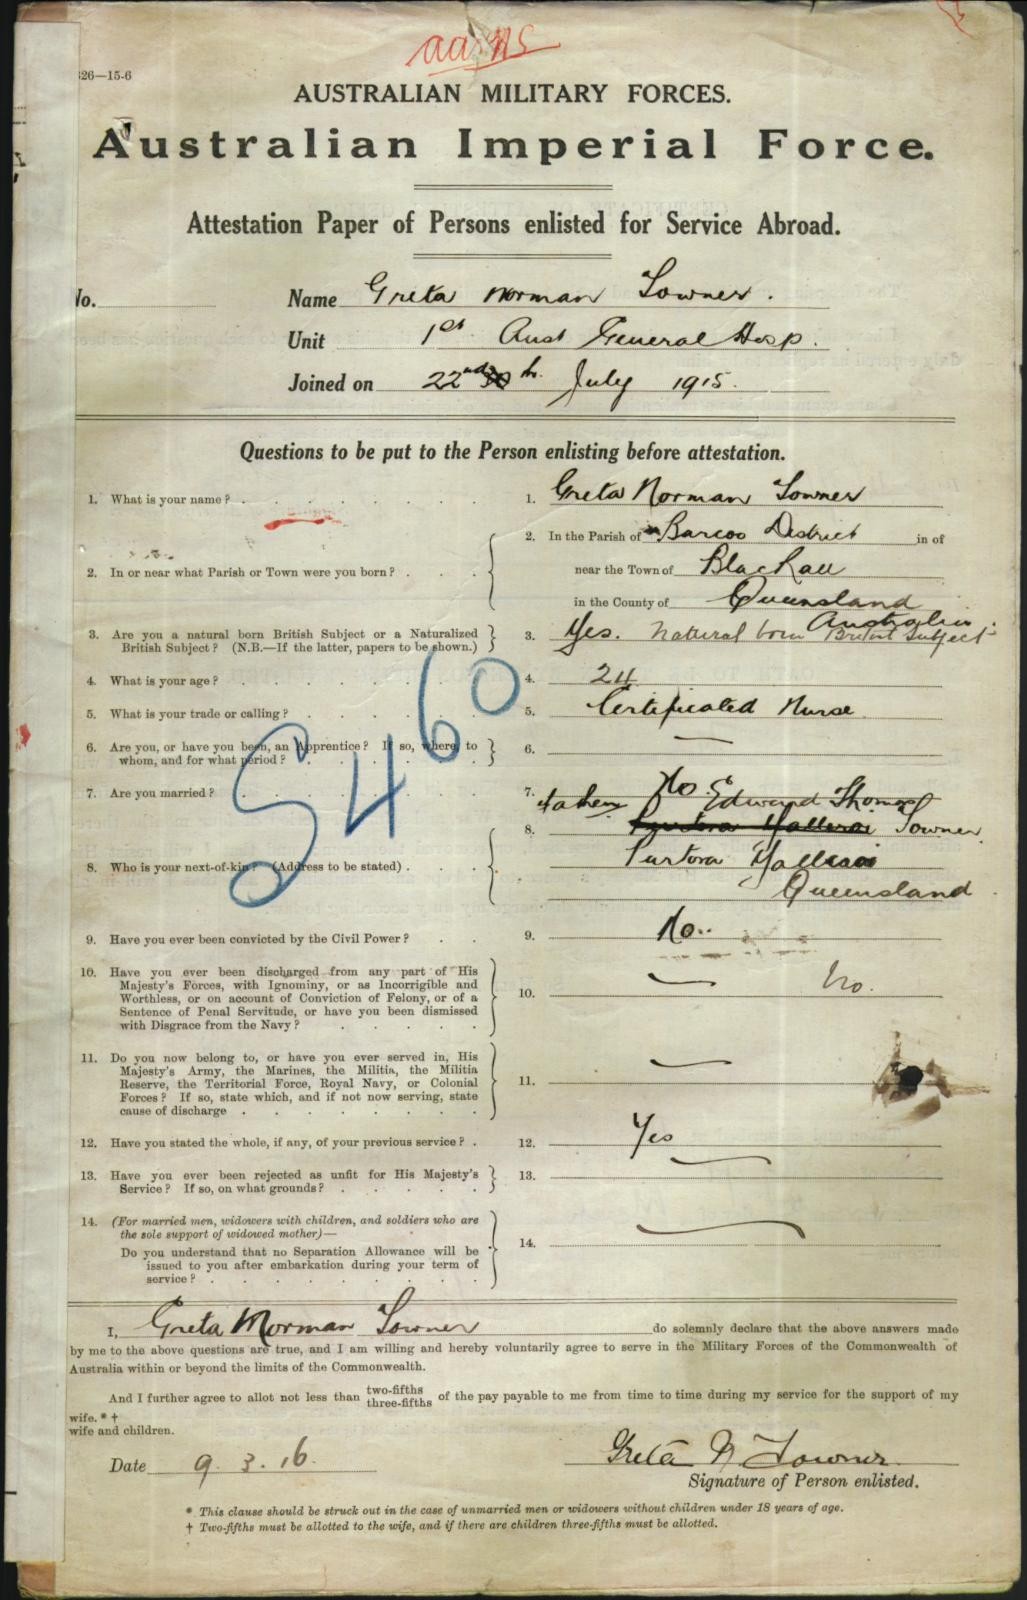 aans
26—15-6
AUSTRALIAN MILITARY FORCES.
Australian Imperial Force.
Attestation Paper of Persons enlisted for Service Abroad.
No.
Name Greta Norman Towner.
Unit 1st Aust General Hosp.
Joined on 22nd July 1915.
Questions to be put to the Person enlisting before attestation.
1. What is your name? 1. Greta Norman Towner
2. In the Parish of Barcoo District in or
2. In or near what Parish or Town were you born? near the Town of Blackall
in the County of Queensland
Australia.
3. Are you a natural born British Subject or a Naturalized British Subject? (N.B.—If the latter, papers to be shown.) 3. Yes. Natural born British Subject
4. What is your age? 4. 24
5. What is your trade or calling? 5. Certificated Nurse
6. Are you, or have you been, an Apprentice? If so, where, to whom, and for what period? 6. —
7. Are you married? 7. No
5460
8. Who is your next-of-kin? (Address to be stated) 8. Father Edward Thomas Towner
Purtora Yalleroi
Queensland
9. Have you ever been convicted by the Civil Power? 9. No.
10. Have you ever been discharged from any part of His
Majesty's Forces, with Ignominy, or as Incorrigible and
Worthless, or on account of Conviction of Felony, or of a
Sentence of Penal Servitude, or have you been dismissed
with Disgrace from the Navy? 10. — No.
11. Do you now belong to, or have you ever served in, His
Majesty's Army, the Marines, the Militia, the Militia
Reserve, the Territorial Force, Royal Navy, or Colonial
Forces? If so, state which, and if not now serving, state
cause of discharge 11. —
12. Have you stated the whole, if any, of your previous service? 12. Yes
13. Have you ever been rejected as unfit for His Majesty's
Service? If so, on what grounds? 13. —
14. (For married men, widowers with children, and soldiers who are
the sole support of widowed mother)—
Do you understand that no Separation Allowance will be
issued to you after embarkation during your term of
service? 14. —
I, Greta Norman Towner do solemnly declare that the above answers made
by me to the above questions are true, and I am willing and hereby voluntarily agree to serve in the Military Forces of the Commonwealth of
Australia within or beyond the limits of the Commonwealth.
And I further agree to allot not less than two-fifths three-fifths of the pay payable to me from time to time during my service for the support of my
wife. * †
wife and children.
Date 9.3.16. Greta N Towner
Signature of Person enlisted.
* This clause should be struck out in the case of unmarried men or widowers without children under 18 years of age.
† Two-fifths must be allotted to the wife, and if there are children three-fifths must be allotted.